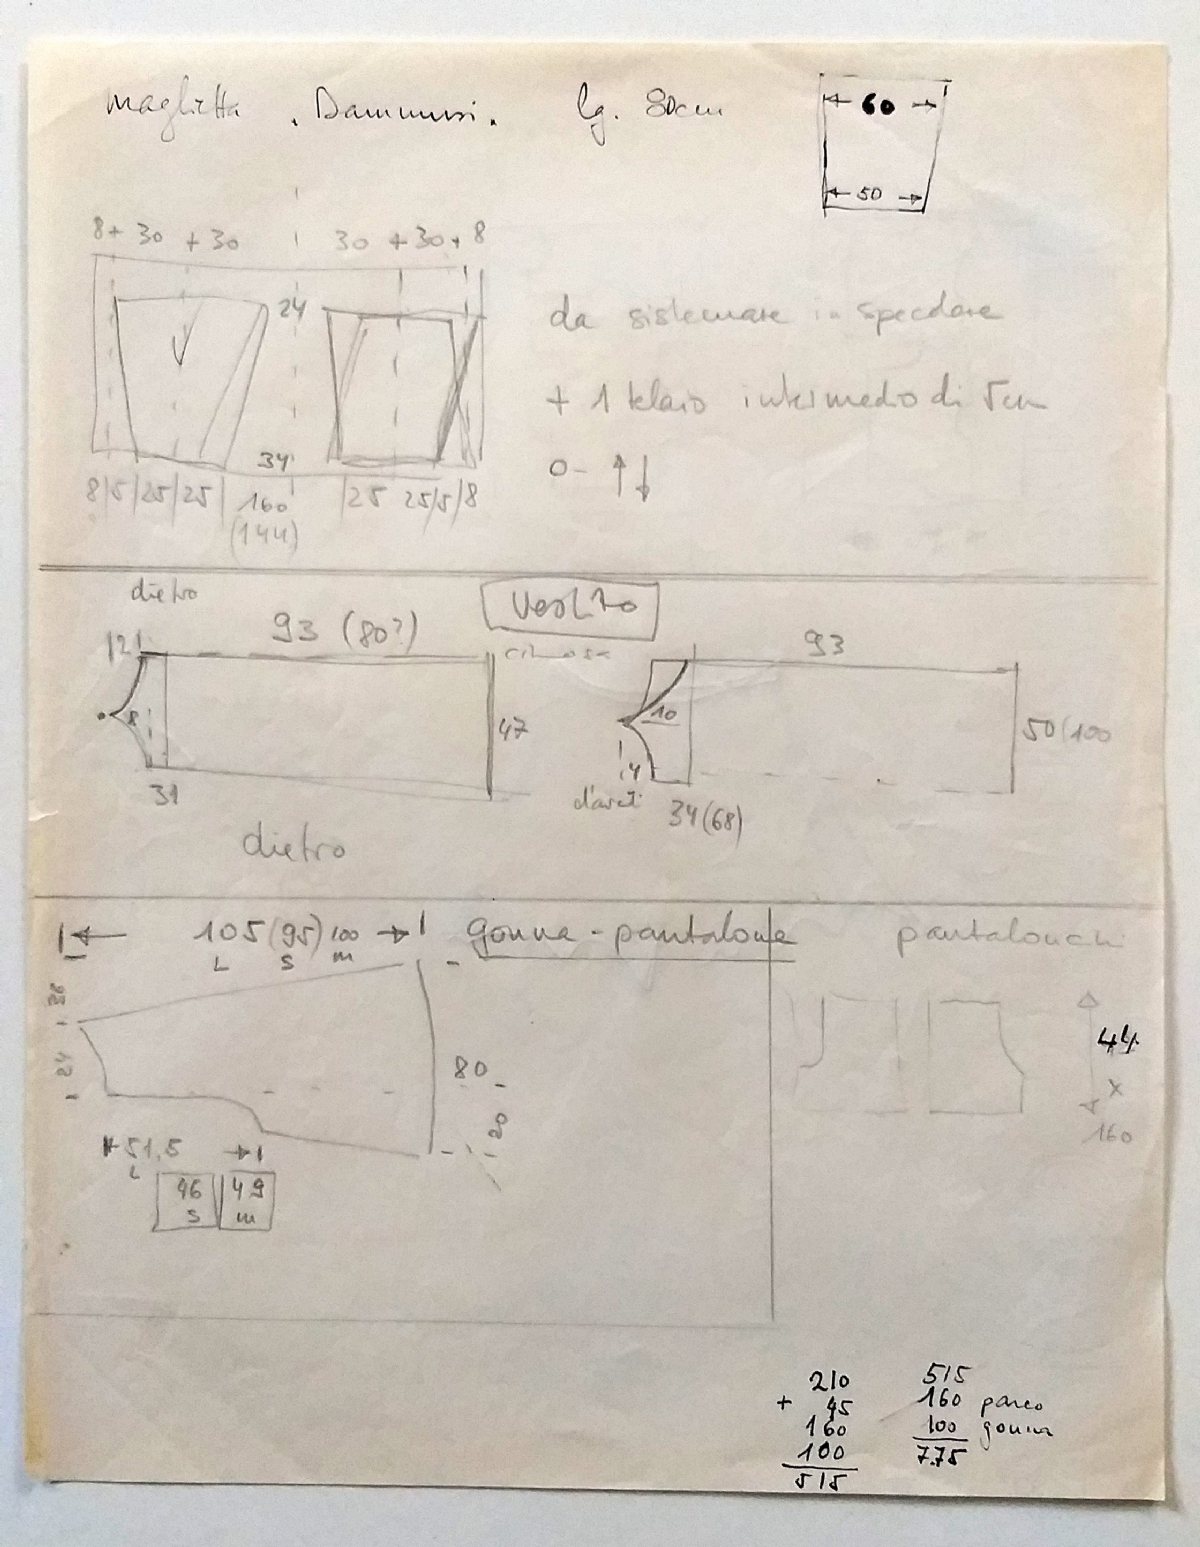 maglietta . Dammusi . lg. 80cm
60
50
8+ 30 + 30 30 + 30 + 8
24
34
8|5|25|25| 160 |25 25|5|8
(144)
da sistemare in specdare
+ 1 telaio intermedio di 5cm
0- ↑↓
dietro
Vestito
|2| 93 (80?) cimosa 93
8 47 10 50(100
31 4
34(68)
dietro
105(95) 100
L S m
gonna - pantalone
pantaloncini
36
24
80
20
51,5
L
46 49
S m
44
x
160
210
+ 45
160
100
515
515
160 pareo
100 gonna
7.75